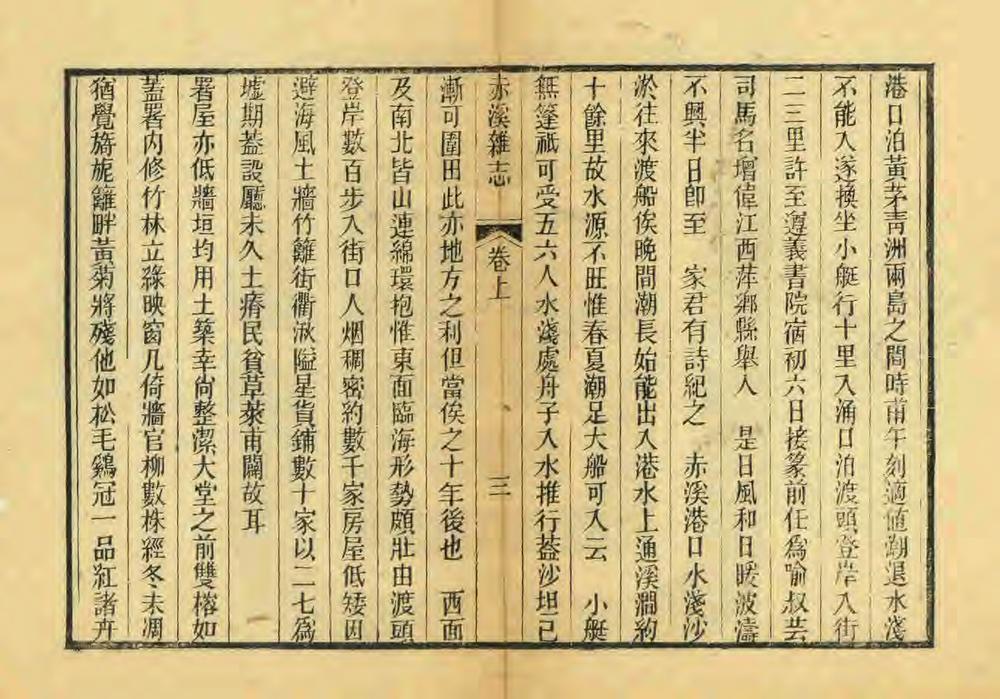 港口泊黃茅靑洲兩島之間時甫午刻適値潮退水淺
不能入遂換坐小艇行十里入涌口泊渡頭登岸入街
二三里許至遵義書院宿初六日接篆前任爲喻叔芸
司馬名增偉江西萍鄉縣舉人　是日風和日暖波濤
不興半日卽至　家君有詩紀之　赤溪港口水淺沙
淤往來渡船俟晚間潮長始能出入港水上通溪澗約
十餘里故水源不旺惟春夏潮足大船可入云　小艇
無篷祗可受五六人水淺處舟子入水推行蓋沙坦已
赤溪雜志　卷上　三
漸可圍田此亦地方之利但當俟之十年後也　西面
及南北皆山連綿環抱惟東面臨海形勢頗壯由渡頭
登岸數百步入街口人烟稠密約數千家房屋低矮因
避海風土牆竹籬街衢湫隘星貨鋪數十家以二七爲
墟期蓋設廳未久土瘠民貧草萊甫闢故耳
署屋亦低牆垣均用土築幸尙整潔大堂之前雙榕如
蓋署內修竹林立綠映窗几倚牆官柳數株經冬未凋
猶覺旖旎籬畔黃菊將殘他如松毛鷄冠一品紅諸卉